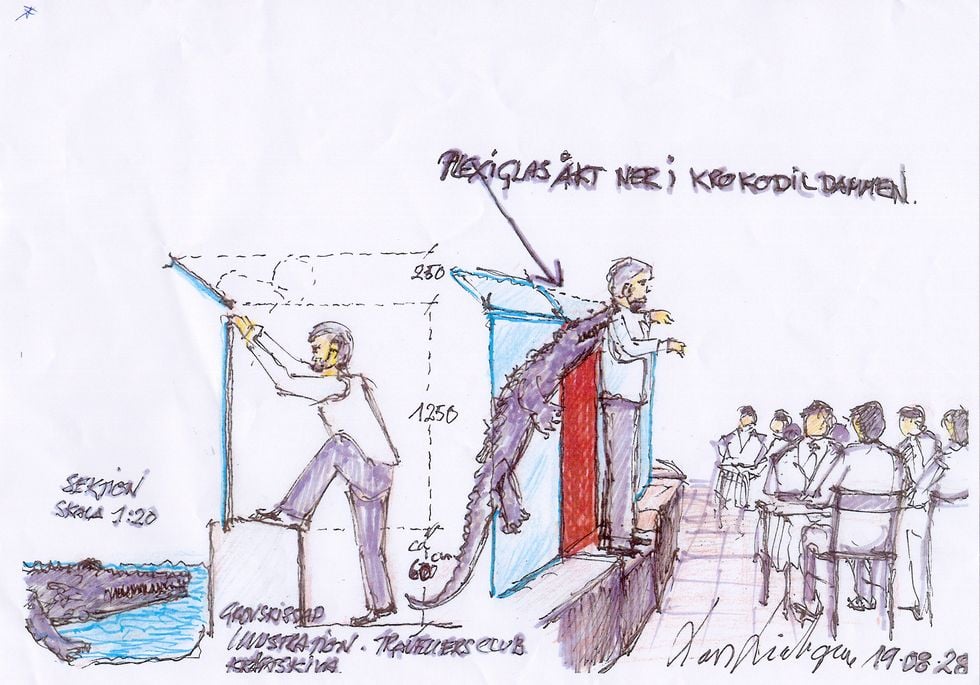 PLEXIGLAS ÅKT NER I KROKODILDAMMEN.
250
1250
SEKTION
SKALA 1:20
ca
600
GROVSKISSAD
ILLUSTRATION. TRAVELLERS CLUB
KRÄFTSKIVA
19-08-28